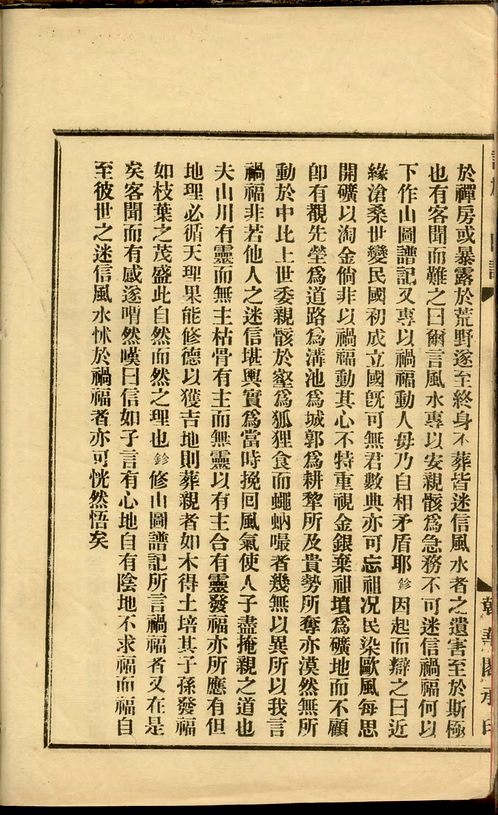 於禪房或暴露於荒野遂至終身不葬皆迷信風水者之遺害至於斯極
也有客聞而難之曰爾言風水專以安親骸爲急務不可迷信禍福何以
下作山圖譜記又專以禍福動人毋乃自相矛盾耶鉁因起而辯之曰近
緣滄桑世變民國初成立國旣可無君數典亦可忘祖况民染歐風每思
開礦以淘金倘非以禍福動其心不特重視金銀棄祖墳爲礦地而不顧
卽有觀先塋爲道路爲溝池爲城郭爲耕犂所及貴勢所奪亦漠然無所
動於中比上世委親骸於壑爲狐狸食而蠅蚋嘬者幾無以異所以我言
禍福非若他人之迷信堪輿實爲當時挽回風氣使人子盡掩親之道也
夫山川有靈而無主枯骨有主而無靈以有主合有靈發福亦所應有但
地理必循天理果能修德以獲吉地則葬親者如木得土培其子孫發福
如枝葉之茂盛此自然而然之理也鉁修山圖譜記所言禍福者又在是
矣客聞而有感遂喟然嘆曰信如子言有心地自有陰地不求福而福自
至彼世之迷信風水怵於禍福者亦可恍然悟矣